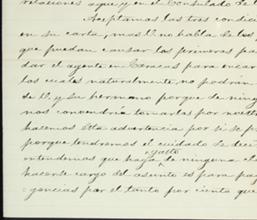 relaciones aquí y en el Consulado de
Aceptamos las tres condic
en su carta, mas V. no habla de los
que puedan causar las primeras pa
dar el agente en Caracas para encar
los cuales naturalmente, no podrán
de V. y su hermano porque de ning
nos convendría tomarlos por nuestr
hacemos esta advertencia por si se p
porque tendremos el cuidado de deci
intendemos que haya gasto de ninguna cl
hacerse cargo del asunto es para pag
gencias por el tanto por ciento que